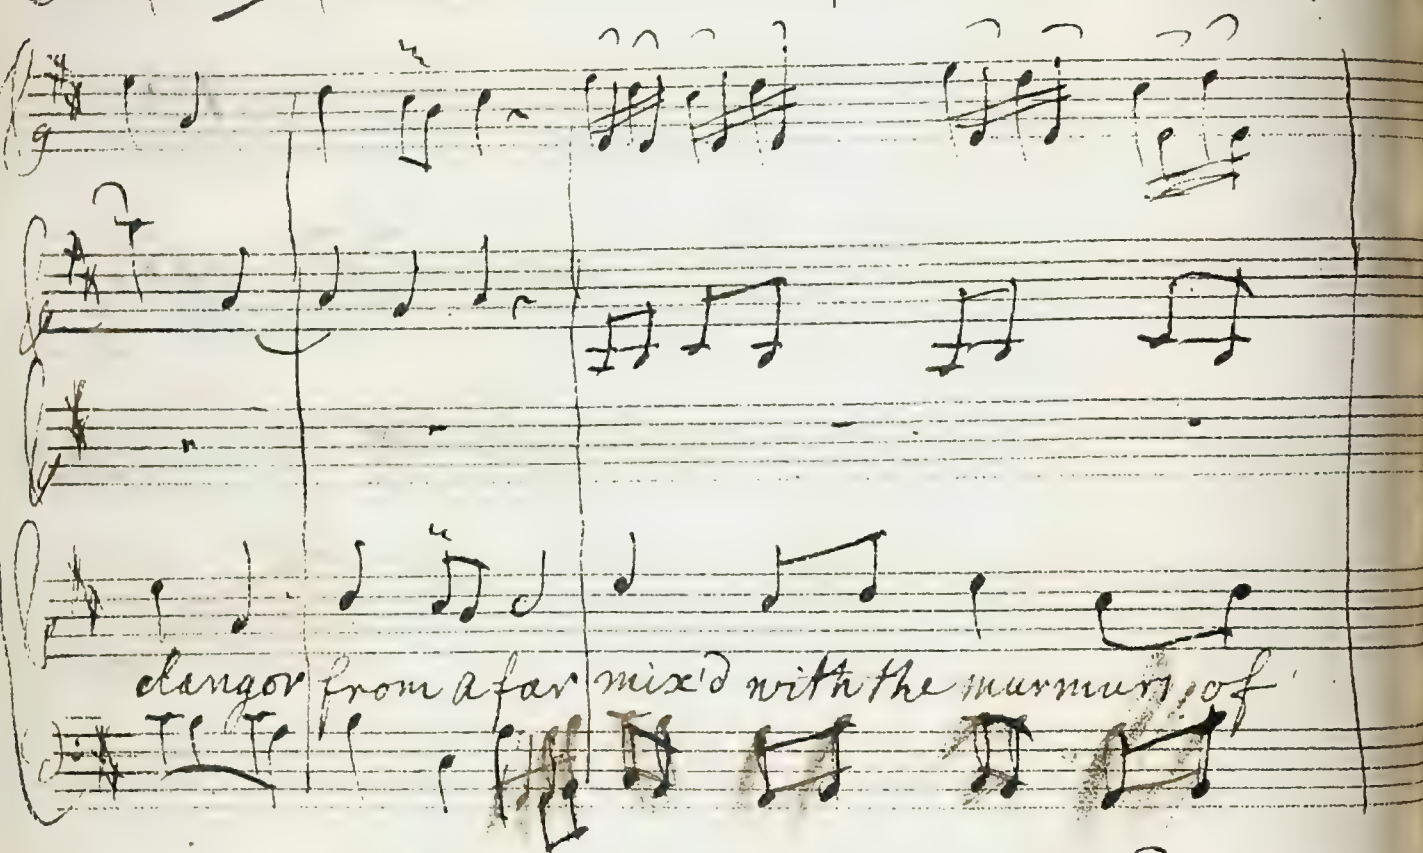 clangor from a far mix'd with the murmurs of